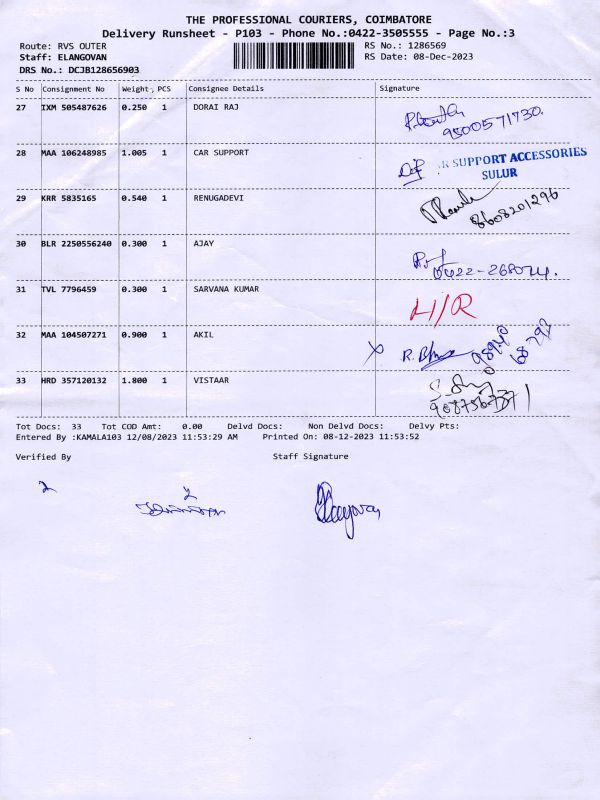 THE PROFESSIONAL COURIERS, COIMBATORE
Delivery Runsheet - P103 - Phone No.:0422-3505555 - Page No.:3
Route: RVS OUTER
RS No.: 1286569
Staff: ELANGOVAN
RS Date: 08-Dec-2023
DRS No.: DCJB128656903
S No Consignment No Weight. PCS Consignee Details Signature
27 IXM 505487626 0.250 1 DORAI RAJ
9500571730.
28 MAA 106248985 1.005 1 CAR SUPPORT
R SUPPORT ACCESSORIES
SULUR
29 KRR 5835165 0.540 1 RENUGADEVI
8608201296
30 BLR 2250556240 0.300 1 AJAY
31 TVL 7796459 0.300 1 SARVANA KUMAR
32 MAA 104507271 0.900 1 AKIL
33 HRD 357120132 1.800 1 VISTAAR
Tot Docs: 33 Tot COD Amt: 0.00 Delvd Docs: Non Delvd Docs: Delvy Pts:
Entered By :KAMALA103 12/08/2023 11:53:29 AM Printed On: 08-12-2023 11:53:52
Verified By Staff Signature